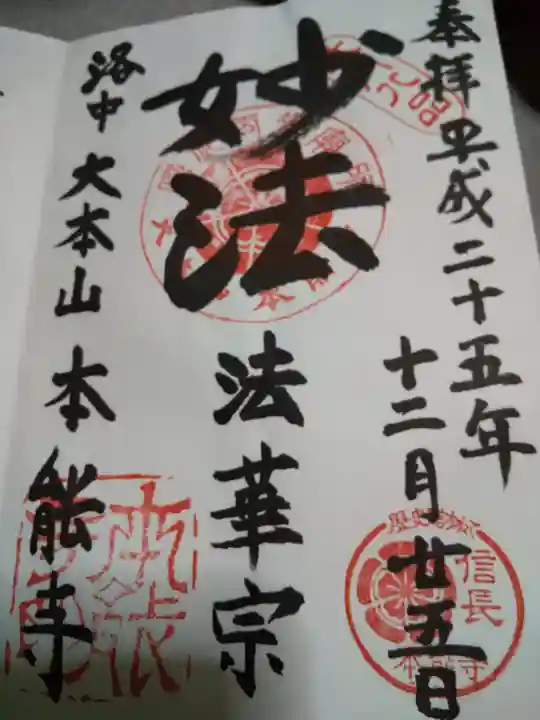 奉拝 平成二十五年
十二月廿五日
妙法
法華宗
洛中 大本山 本能寺
信長
本能寺